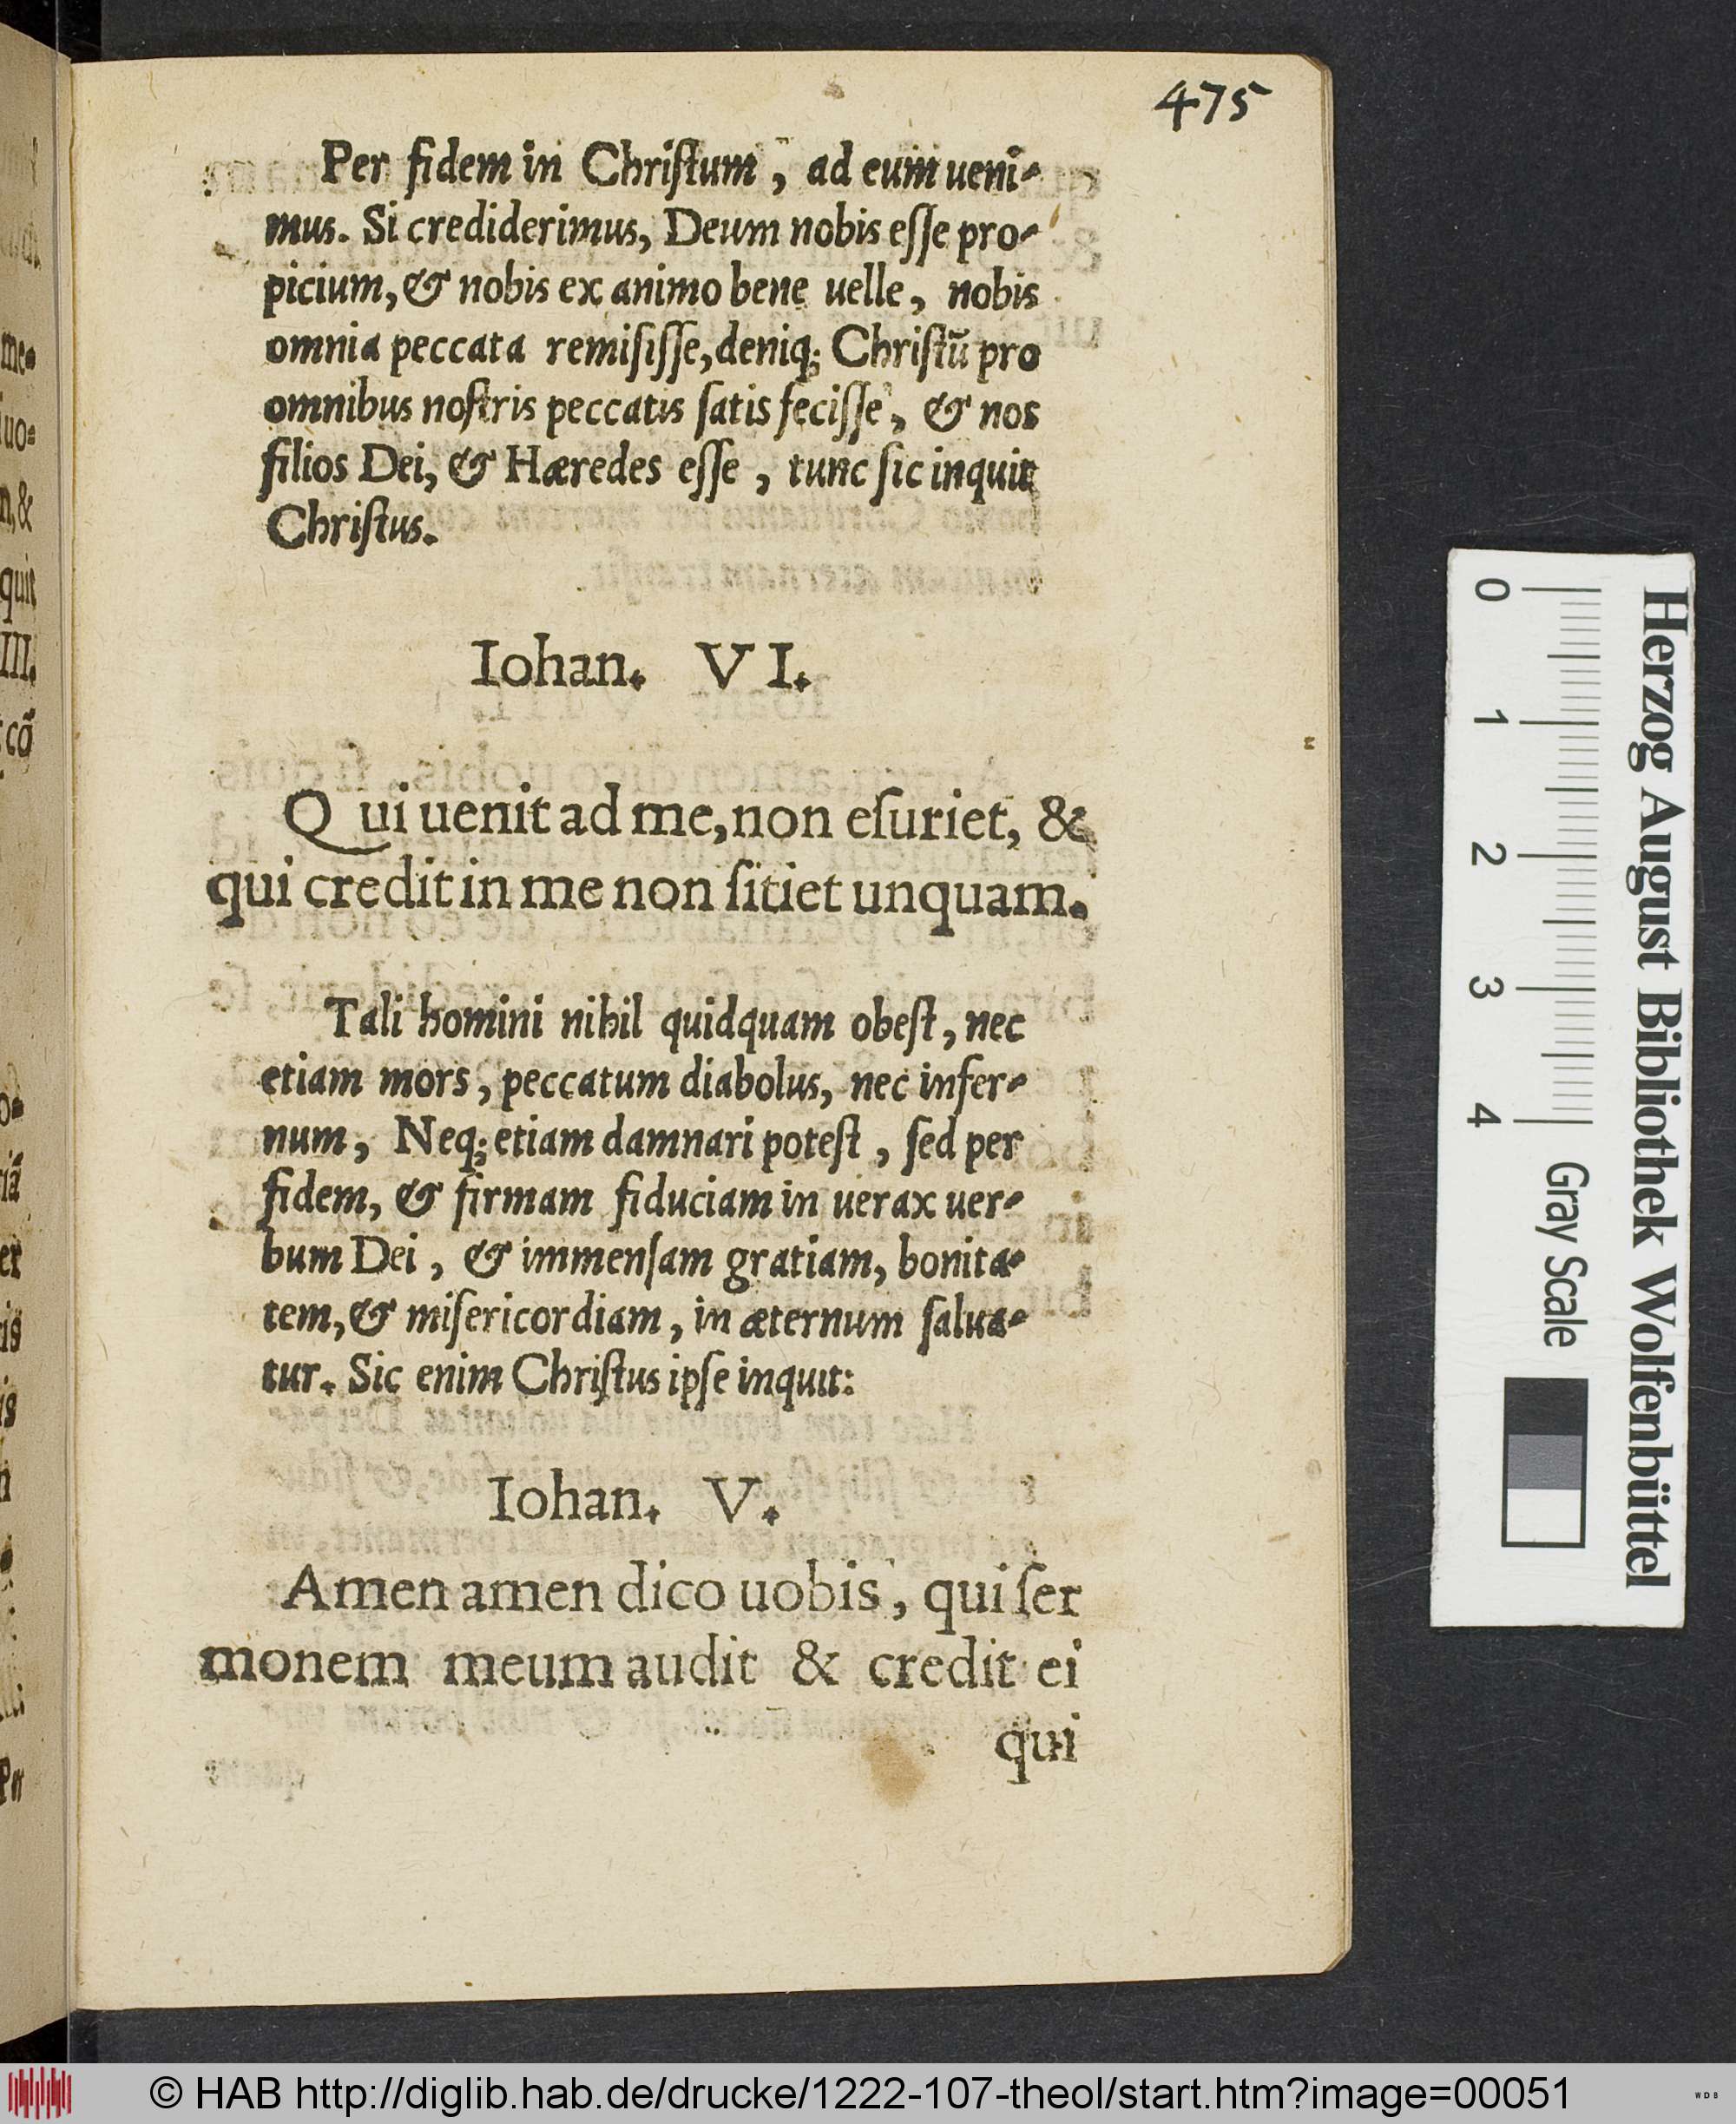 475
Per fidem in Chriſtum, ad eum ueni-
mus. Si crediderimus, Deum nobis eſſe pro-
picium, & nobis ex animo bene uelle, nobis
omnia peccata remiſiſſe, deniq; Chriſtũ pro
omnibus noſtris peccatis ſatis feciſſe, & nos
filios Dei, & Hæredes eſſe, tunc ſic inquit
Chriſtus.
Iohan. VI.
Qui uenit ad me, non eſuriet, &
qui credit in me non ſitiet unquam.
Tali homini nihil quidquam obeſt, nec
etiam mors, peccatum diabolus, nec infer-
num, Neq; etiam damnari poteſt, ſed per
fidem, & firmam fiduciam in uerax uer-
bum Dei, & immenſam gratiam, bonita-
tem, & miſericordiam, in æternum ſalua-
tur. Sic enim Chriſtus ipſe inquit:
Iohan. V.
Amen amen dico uobis, qui ſer
monem meum audit & credit ei
qui
Herzog August Bibliothek Wolfenbüttel
0 1 2 3 4 Gray Scale
© HAB http://diglib.hab.de/drucke/1222-107-theol/start.htm?image=00051
WDB